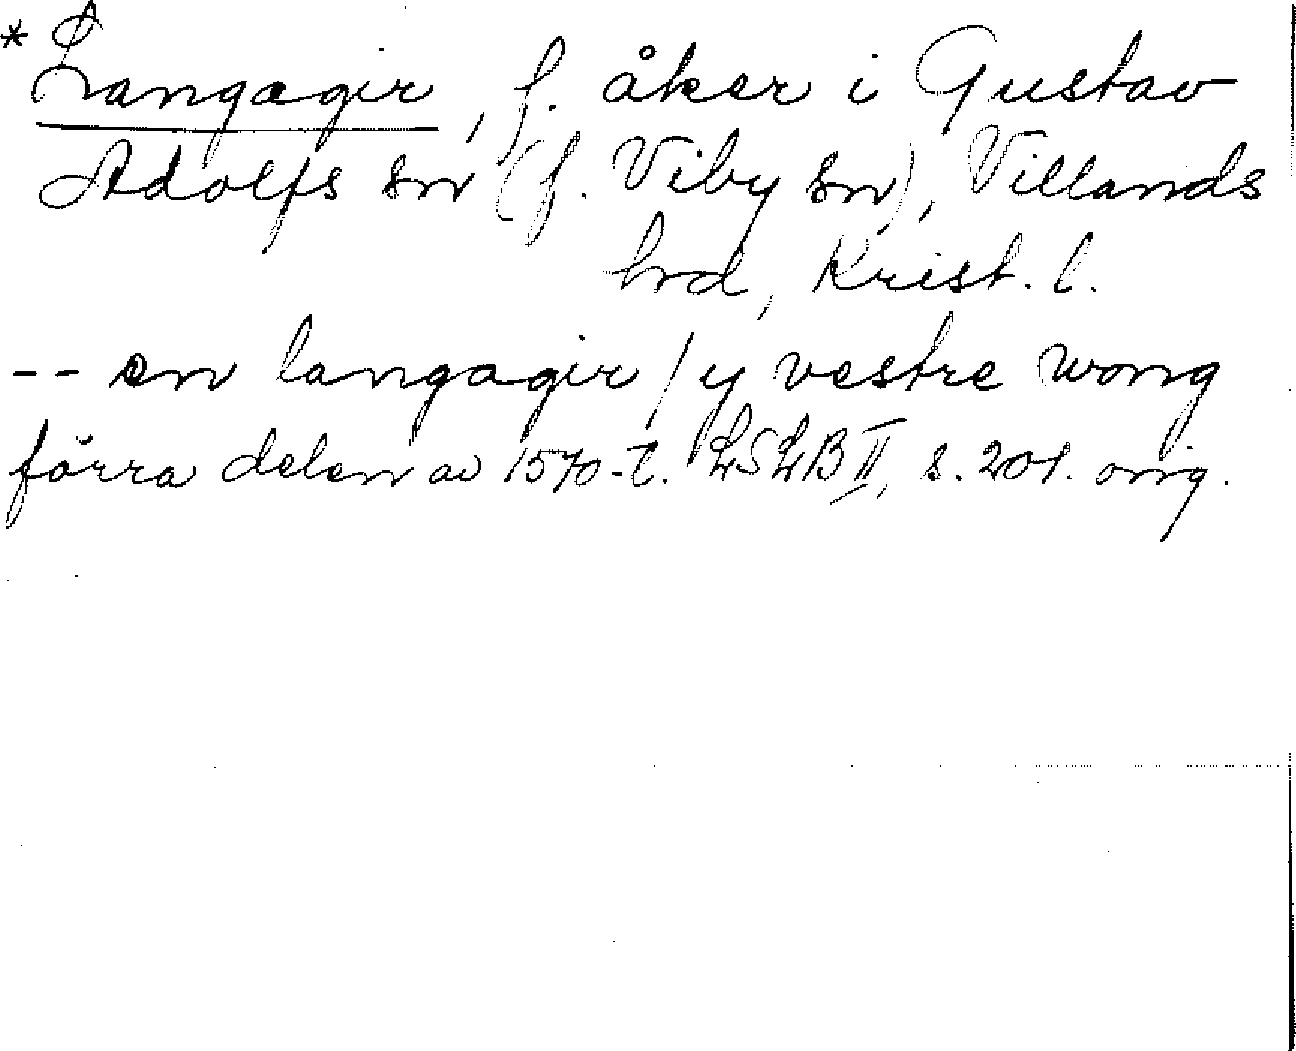 * Langagir, f. åker i Gustav
Adolfs sn (f. Viby sn), Villands
hrd, Krist. l.
-- en langagir / y vestre wong
förra delen av 1570-t. LSLB II, s. 201. orig.